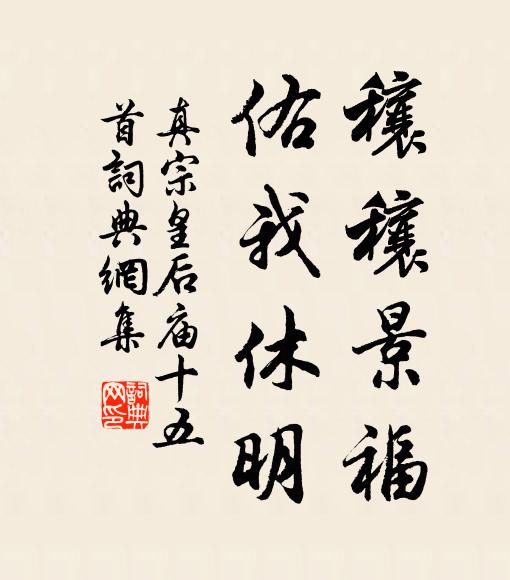 穰穰景福
佑我休明
真宗皇后庙十五
首詞典網集
詞典网印